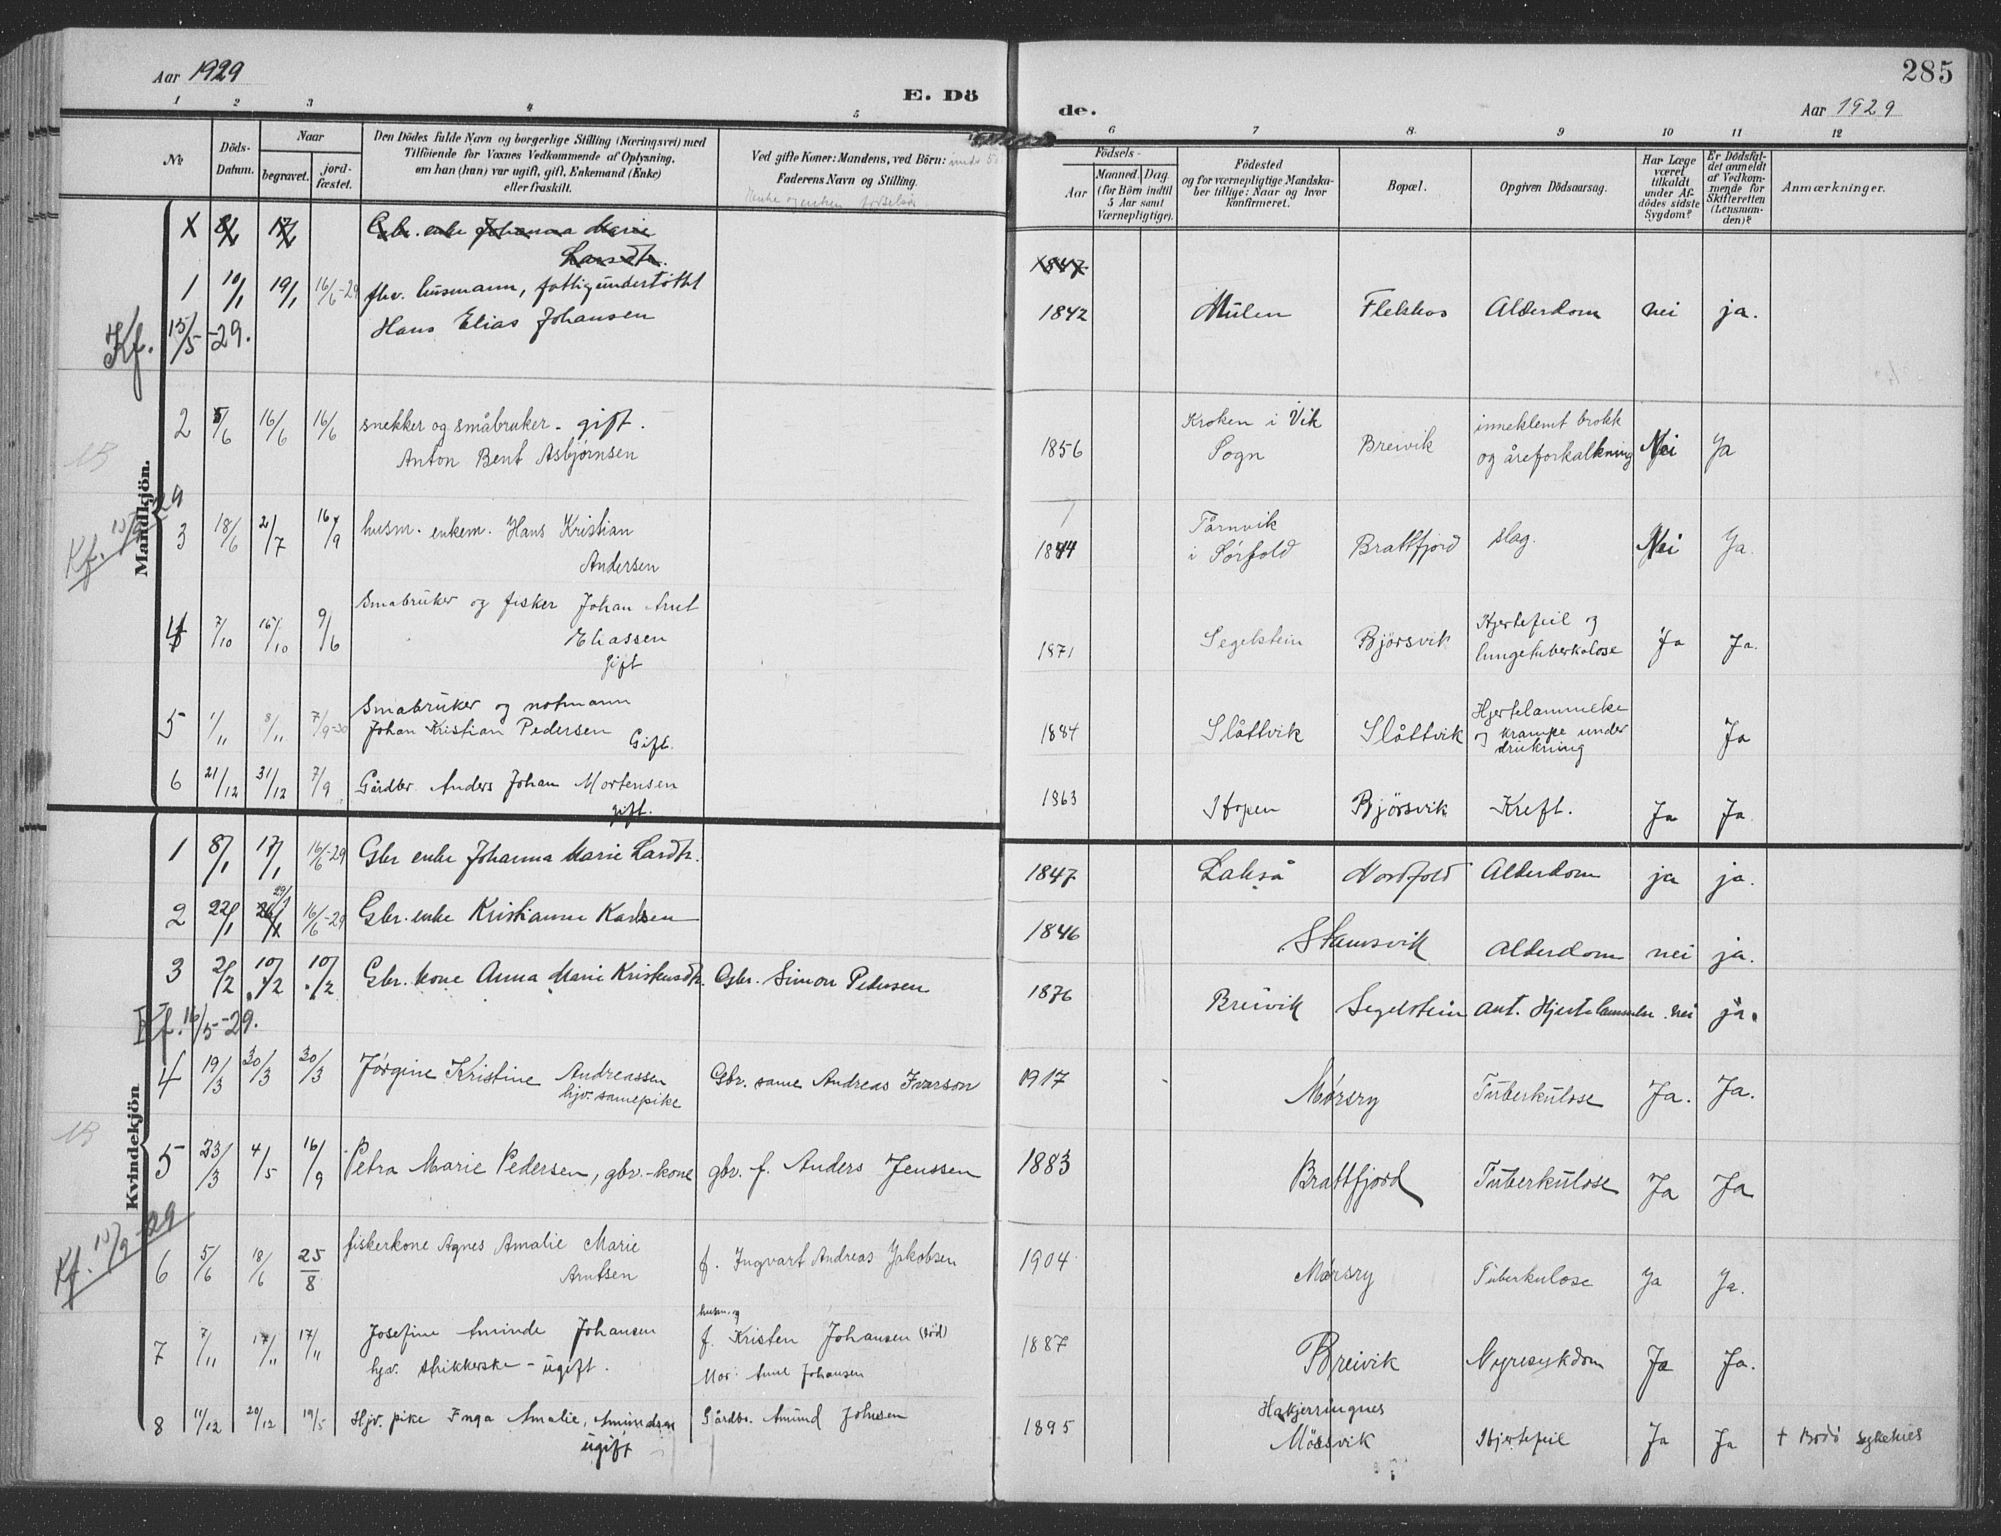 Aar 1929
E. Dö
de.
285
Aar 1929
1 2 3 4 5 6 7 8 9 10 11 12
No
Döds-
Datum.
Naar
begravet.
jord-
fæstet.
Den Dödes fulde Navn og borgerlige Stilling (Næringsvei) med
Tilföiende for Voxnes Vedkommende af Oplysning,
om han (hun) var ugift, gift, Enkemand (Enke)
eller fraskilt.
Ved gifte Koner: Mandens, ved Börn:
Faderens Navn og Stilling.
Födsels-
Aar
Maaned. Dag.
(for Börn indtil
5 Aar samt
Værnepligtige).
Födested
og for værnepligtige Mandska-
ber tillige: Naar og hvor
konfirmeret.
Bopæl.
Opgiven Dödsaarsag.
Har Læge
været
tilkaldt
under Af-
dödes sidste
Sygdom?
Er Dödsfal-
det anmeldt
af Vedkom-
mende for
Skifteretten
(Lensman-
den)?
Anmærkninger.
Mandkjön.
X 8/1 17/1 Gbr. enke Johanna Marie
Larsdtr. 1847
1 10/1 19/1 16/6-29 fhv. husmann, fattigunderstøttet
Hans Elias Johansen 1842 Mulen Flekkos Alderdom nei ja.
Kf. 15/5-29.
2 5/6 16/6 16/6 snekker og småbruker - gift.
Anton Bent Asbjørnsen 1856 Kroken i Vik
Sogn Breivik inneklemt brokk
og åreforkalkning Nei Ja
Kf. 15/9 29
3 18/6 2/7 16/9 husm. enkem. Hans Kristian
Andersen 1844 Tårnvik
i Sørfold Brattfjord slag. Nei Ja.
4 7/10 16/10 9/6 Småbruker og fisker Johan Arnt
Eliassen
Gift 1871 Segelstein Bjørsvik Hjertefeil og
lungetuberkulose Ja Ja.
5 1/11 8/11 7/9-30 Småbruker og notmann
Johan Kristian Pedersen
Gift. 1884 Slåttvik Slåttvik Hjertelammelse
og krampe under
drukning Ja
6 21/12 31/12 7/9 Gårdbr. Anders Johan Mortensen
gift. 1863 Hopen Bjørsvik Kreft. Ja Ja
Kvindekjön
1 8/1 17/1 16/6-29 Gbr enke Johanna Marie Larsdtr. 1847 Lakså Nordfold Alderdom ja ja.
2 22/1 29/1 16/6-29 Gbr. enke Kristianne Karlsen 1846 Stamsvik Alderdom nei ja.
3 2/2 10/2 10/2 Gbr. kone Anna Marie Kristensdtr. Gbr. Simon Pedersen 1876 Breivik Segelstein ant. Hjertelammelse. nei ja.
Kf. 16/5-29.
4 19/3 30/3 30/3 Jørgine Kristine Andreassen
hjv. samepike Gbr. same Andreas Ivarson 1917 Mørsry Tuberkulose Ja. Ja.
5 23/3 4/5 16/9 Petra Marie Pedersen, gbr.-kone gbr. f. Anders Jenssen 1883 Brattfjord Tuberkulose Ja Ja
Kf. 15/9-29
6 5/6 18/6 25/8 fiskerkone Agnes Amalie Marie
Arntsen f. Ingvart Andreas Jakobsen 1904 Mørsry Tuberkulose Ja Ja.
7 7/11 17/11 17/11 Josefine Aminde Johansen
hjv. strikkerske - ugift. husm. og
f. Kristen Johansen (død)
Mor: Anne Johansen 1887 Breivik Nyresykdom Ja Ja.
8 11/12 20/12 19/5 Hjv. pike Inga Amalie, Amundsen
ugift Gårdbr. Amund Johnsen 1895 Hakjerringnes
Mørsvik Hjertefeil Ja Ja + Bodø sykehus